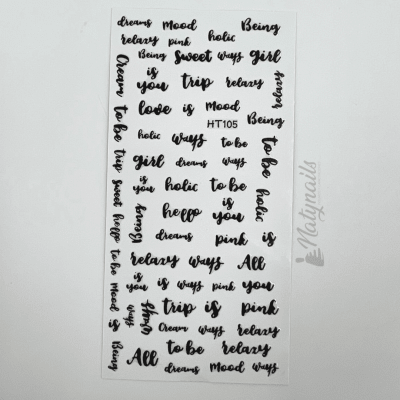 dreams Mood Being
relaxy pink holic
Being sweet ways girl
is
you trip relaxy
relaxy
Cream to be trip sweet hello to be Mood is Being
love is Mood
HT105 Being
holic ways to be
to be holic
girl dreams ways
is
you holic to be
hello is
you
Being
dreams pink is
relaxy ways All
is
you is ways pink you
ways
trip is pink
Cream ways relaxy
All to be relaxy
dreams Mood ways
Matynails